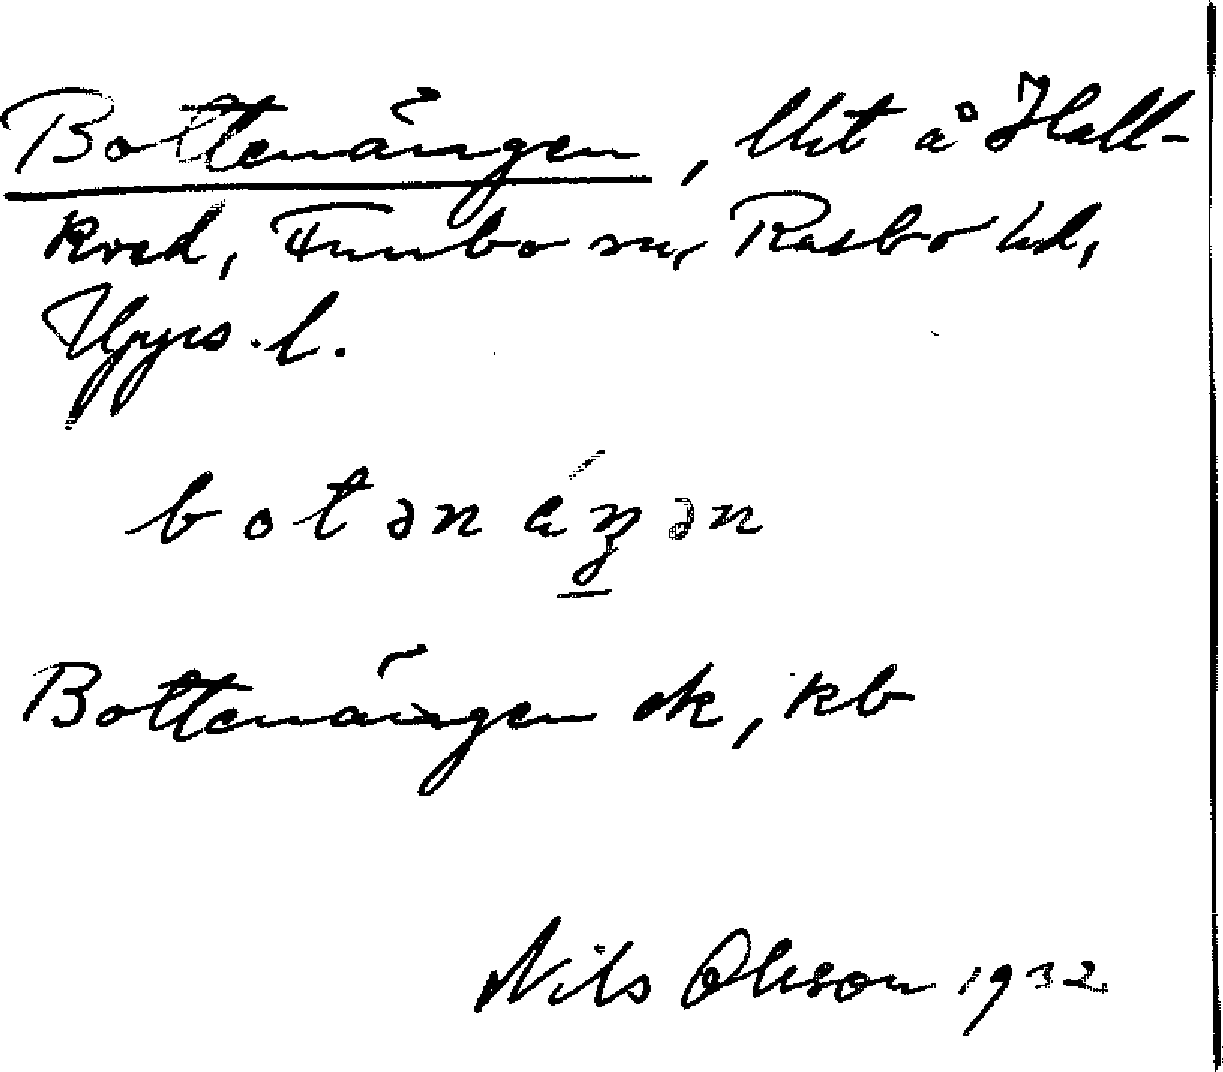 Bottenängen, lht å Hall-
kved, Funbo sn, Rasbo hd,
Upps. l.
botənáŋən
Bottenängen ek, kb
Nils Olsson 1932